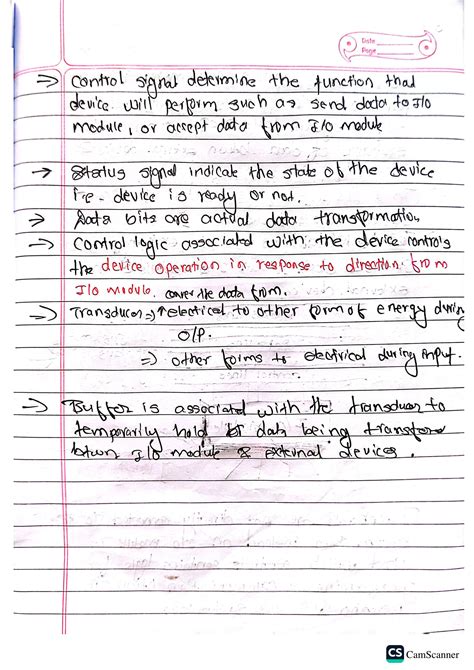 Date
Page
→ Control signal determine the function that
device will perform such as send data to I/O
module, or accept data from I/O module
→ Status signal indicate the state of the device
i.e - device is ready or not.
→ Data bits are actual data transformation.
→ Control logic associated with the device controls
the device operation in response to direction from
I/O module. the data from.
→ Transducer ⇒ electical to other form of energy during
O/P.
⇒ other forms to electrical during input.
→ Buffer is associated with the transducer to
temporarily hold data being transfore
btwn I/O module & external devices.
CS CamScanner